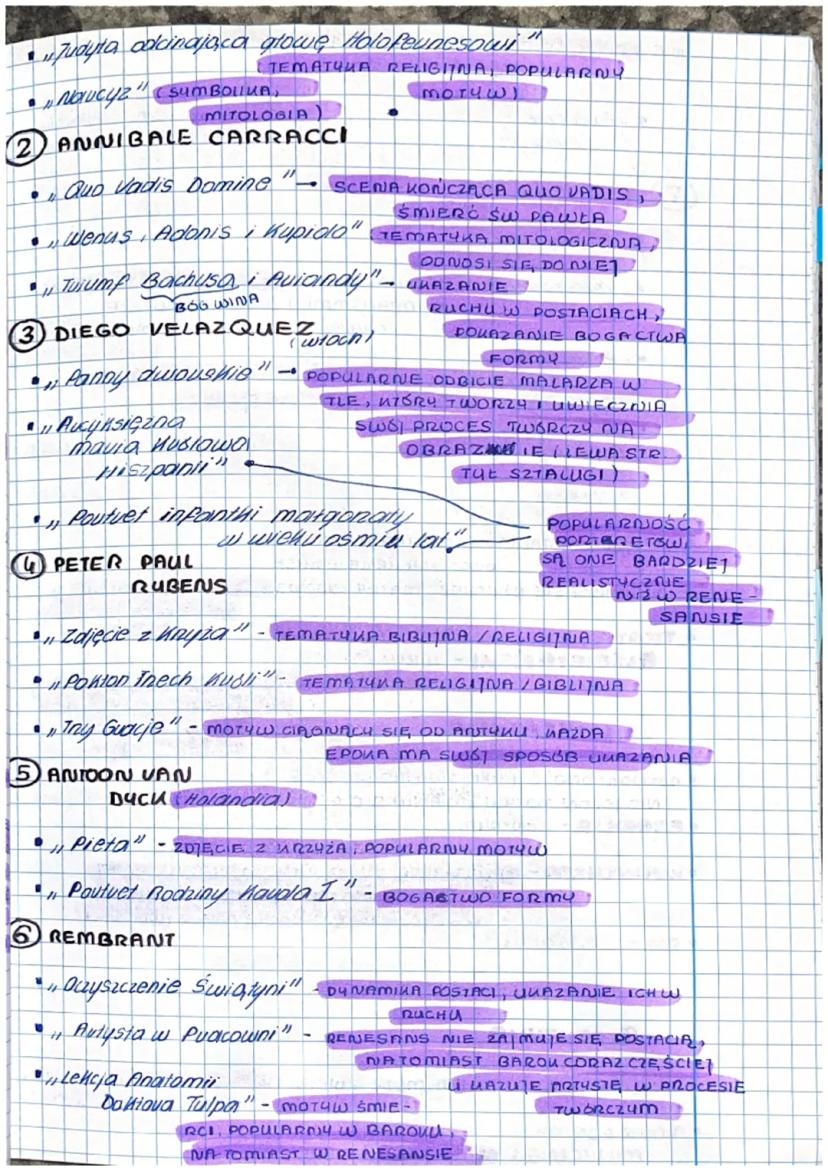 • „Judyta odcinająca głowę Holofernesowi"
(TEMATYKA RELIGIJNA, POPULARNY
MOTYW)
• „Narcyz" (SYMBOLIKA,
MITOLOGIA)
② ANNIBALE CARRACCI
• „Quo Vadis Domine" → SCENA KOŃCZĄCA QUO VADIS,
ŚMIERĆ ŚW PAWŁA
• „Wenus, Adonis i Kupido" TEMATYKA MITOLOGICZNA,
ODNOSI SIĘ DO NIEJ
• „Triumf Bachusa i Ariandy" - UKAZANIE
BÓG WINA
RUCHU W POSTACIACH,
POKAZANIE BOGACTWA
FORMY
③ DIEGO VELAZQUEZ
(Włoch)
• „Panny dworskie" → POPULARNE ODBICIE MALARZA W
TLE, KTÓRY TWORZY I UWIECZNIA
SWÓJ PROCES TWÓRCZY NA
OBRAZIE (LEWA STR.
TYŁ SZTALUGI)
• „Arcyksiężna
Maria Królowa
Hiszpanii"
• „Portret infantki małgorzaty
w wieku ośmiu lat"
POPULARNOŚĆ
PORTRETÓW,
SĄ ONE BARDZIEJ
REALISTYCZNE
NIŻ W RENE-
SANSIE
④ PETER PAUL
RUBENS
• „Zdjęcie z Krzyża" - TEMATYKA BIBLIJNA / RELIGIJNA
• „Pokłon Trzech Króli" - TEMATYKA RELIGIJNA / BIBLIJNA
• „Trzy Gracje" - MOTYW CIĄGNĄCY SIĘ OD ANTYKU, KAŻDA
EPOKA MA SWÓJ SPOSÓB UKAZANIA
⑤ ANTOON VAN
DYCK (Holandia)
• „Pieta" - ZDJĘCIE Z KRZYŻA, POPULARNY MOTYW
• „Portret Rodziny Karola I" - BOGACTWO FORMY
⑥ REMBRANT
• „Oczyszczenie Świątyni" - DYNAMIKA POSTACI, UKAZANIE ICH W
RUCHU
• „Artysta w Pracowni" - RENESANS NIE ZAJMUJE SIĘ POSTACIĄ,
NATOMIAST BAROK CORAZ CZĘŚCIEJ
UKAZUJE ARTYSTĘ W PROCESIE
TWÓRCZYM
• „Lekcja Anatomii
Doktora Tulpa" - MOTYW ŚMIE-
RCI, POPULARNY W BAROKU,
NATOMIAST W RENESANSIE